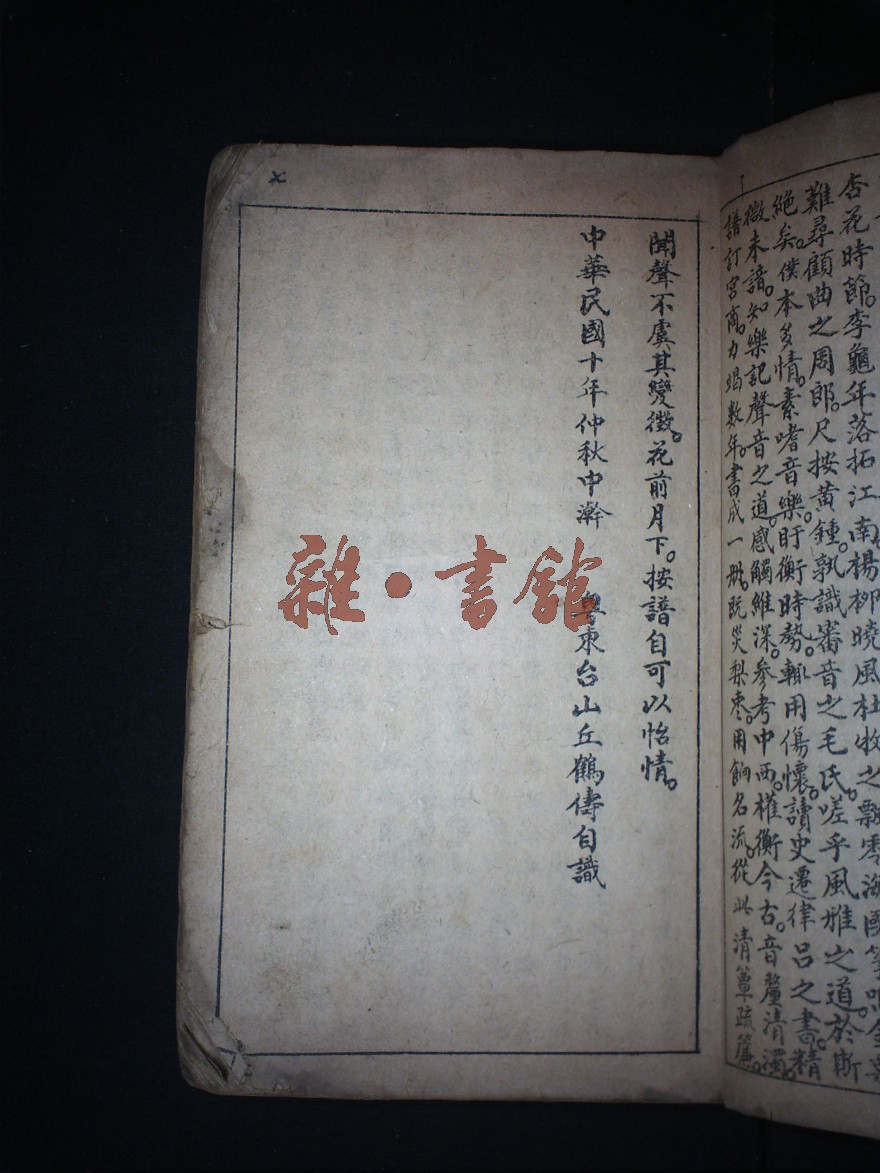 杏花時節。李龜年落拓江南。楊柳曉風。杜牧之飄零海國。
難尋顧曲之周郎。尺按黃鍾。孰識審音之毛氏。嗟乎。風雅之道。於斯
絕矣。僕本多情。素嗜音樂。盱衡時勢。輒用傷懷。讀史遷律呂之書。精
微未諳。知樂記聲音之道。感觸維深。參考中西。權衡今古。音釐清濁。
譜訂宮商。力竭數年。書成一册。旣災梨棗。用餉名流。從此清簟疏簾。
聞聲不虞其變徵。花前月下。按譜自可以怡情。
中華民國十年仲秋中澣 粵東台山丘鶴儔自識
雜·書館